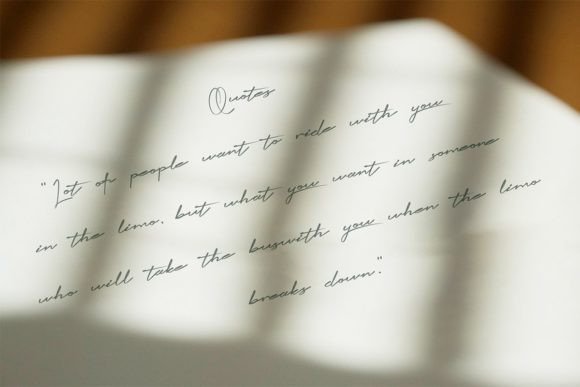 Quotes
"Lot of people want to ride with you
in the limo, but what you want in someone
who will take the buswith you when the limo
breaks down."